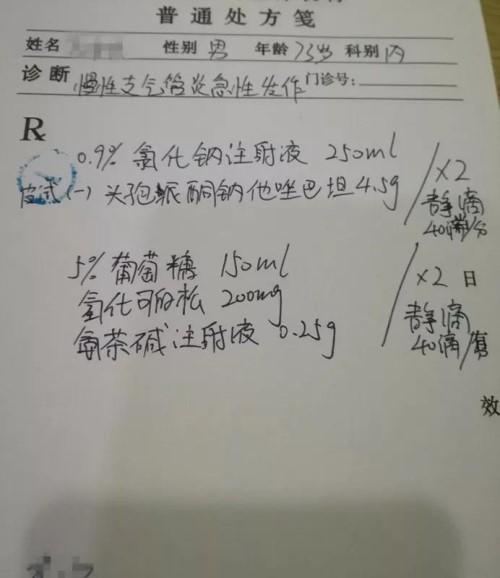 普通处方笺
姓名 性别 男 年龄 73岁 科别 内
诊断 慢性支气管炎急性发作 门诊号:
R
0.9% 氯化钠注射液 250ml /×2
皮试(-) 头孢哌酮钠他唑巴坦 4.5g 静滴
40滴/分
5% 葡萄糖 150ml /×2日
氢化可的松 200mg 静滴
氨茶碱注射液 0.25g 40滴/
效